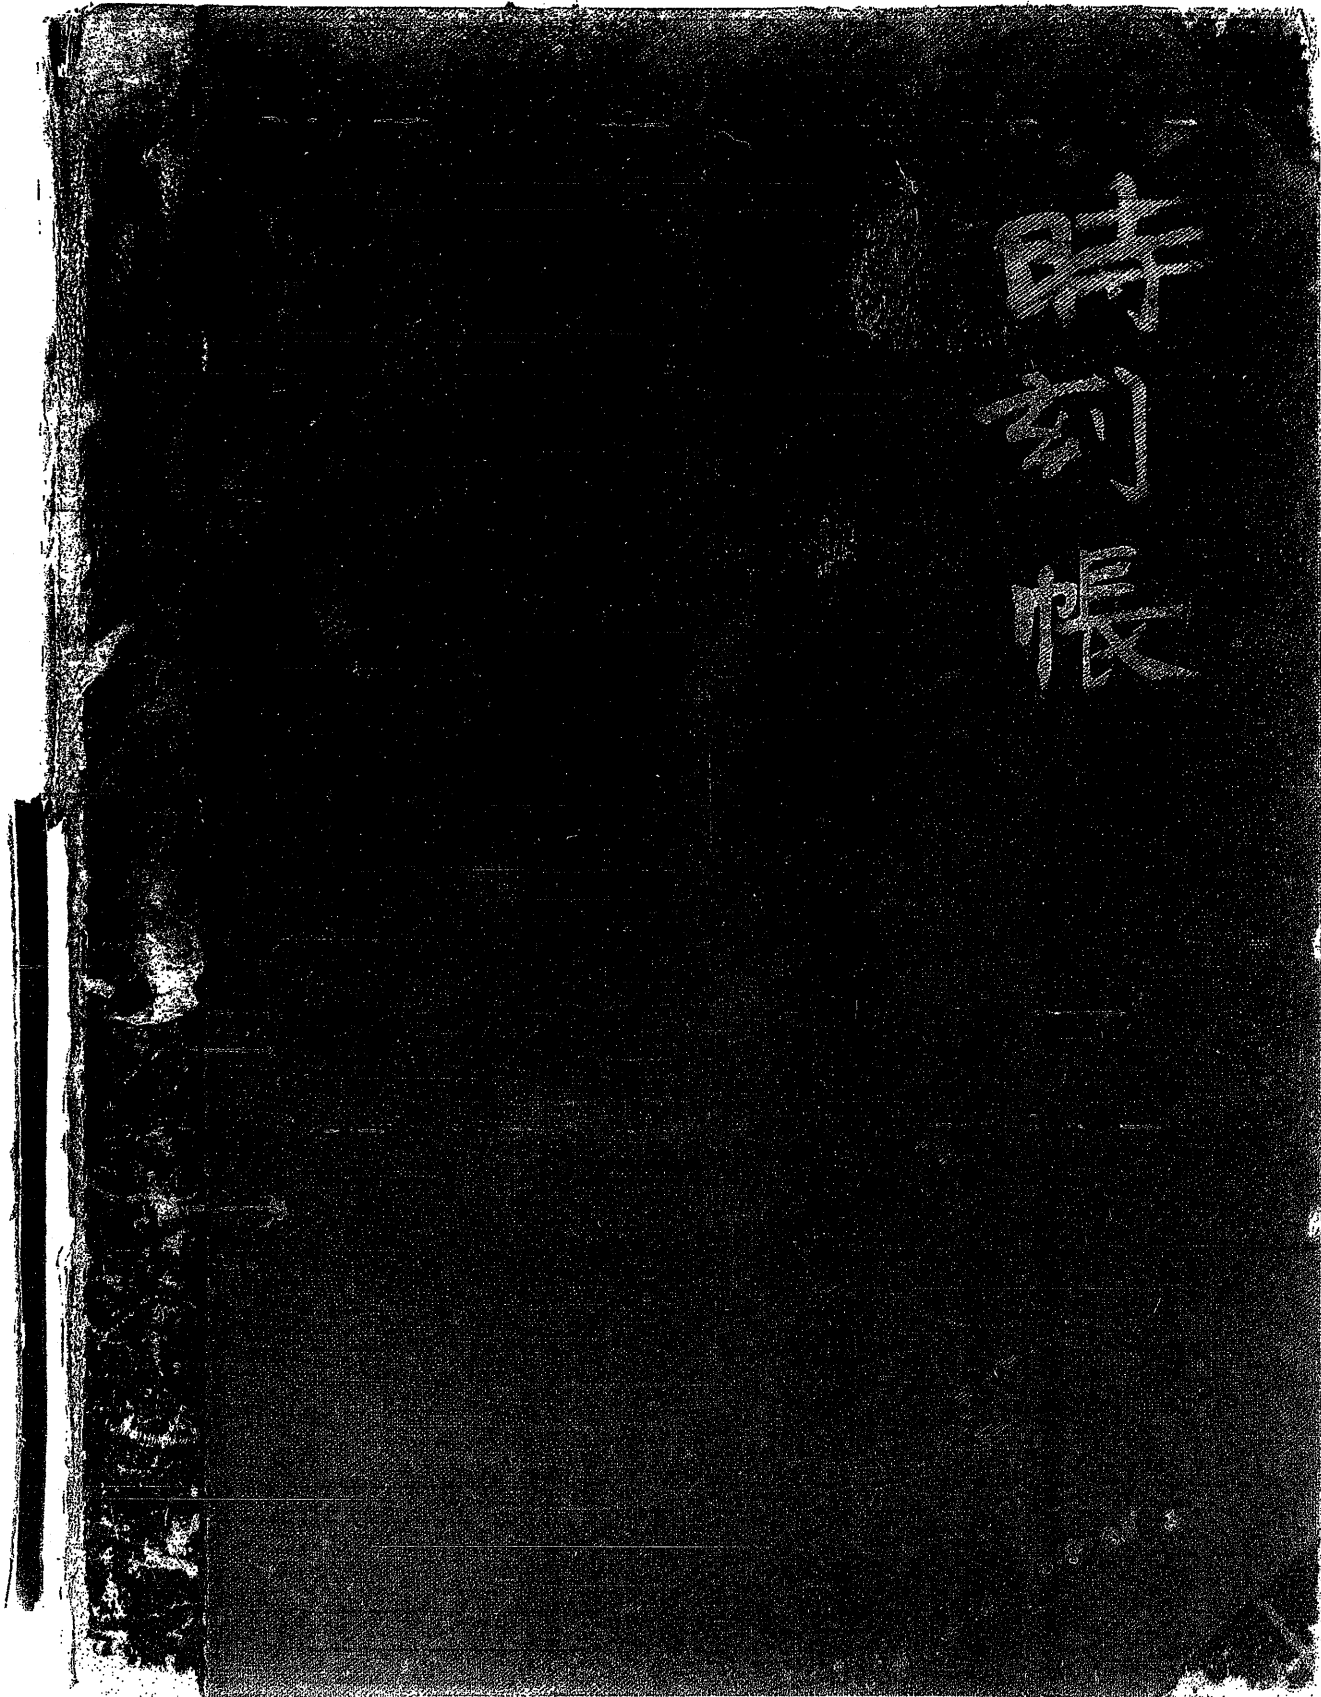 時刻帳